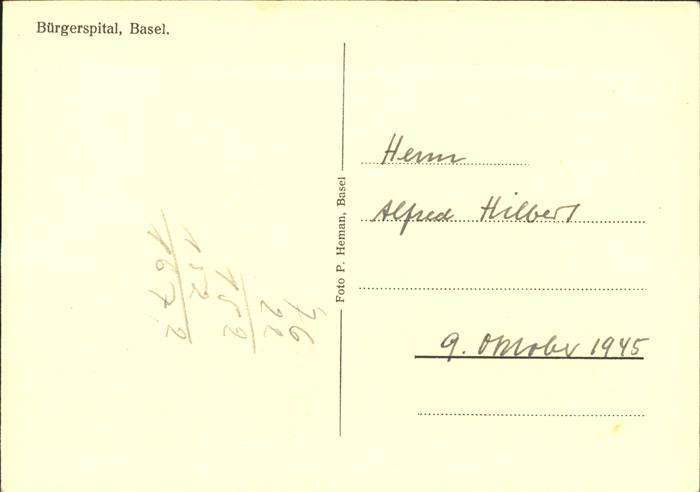 Bürgerspital, Basel.
Foto P. Heman, Basel
Herrn
Alfred Hilbert
9. Oktober 1945
76
22
152
152
1672